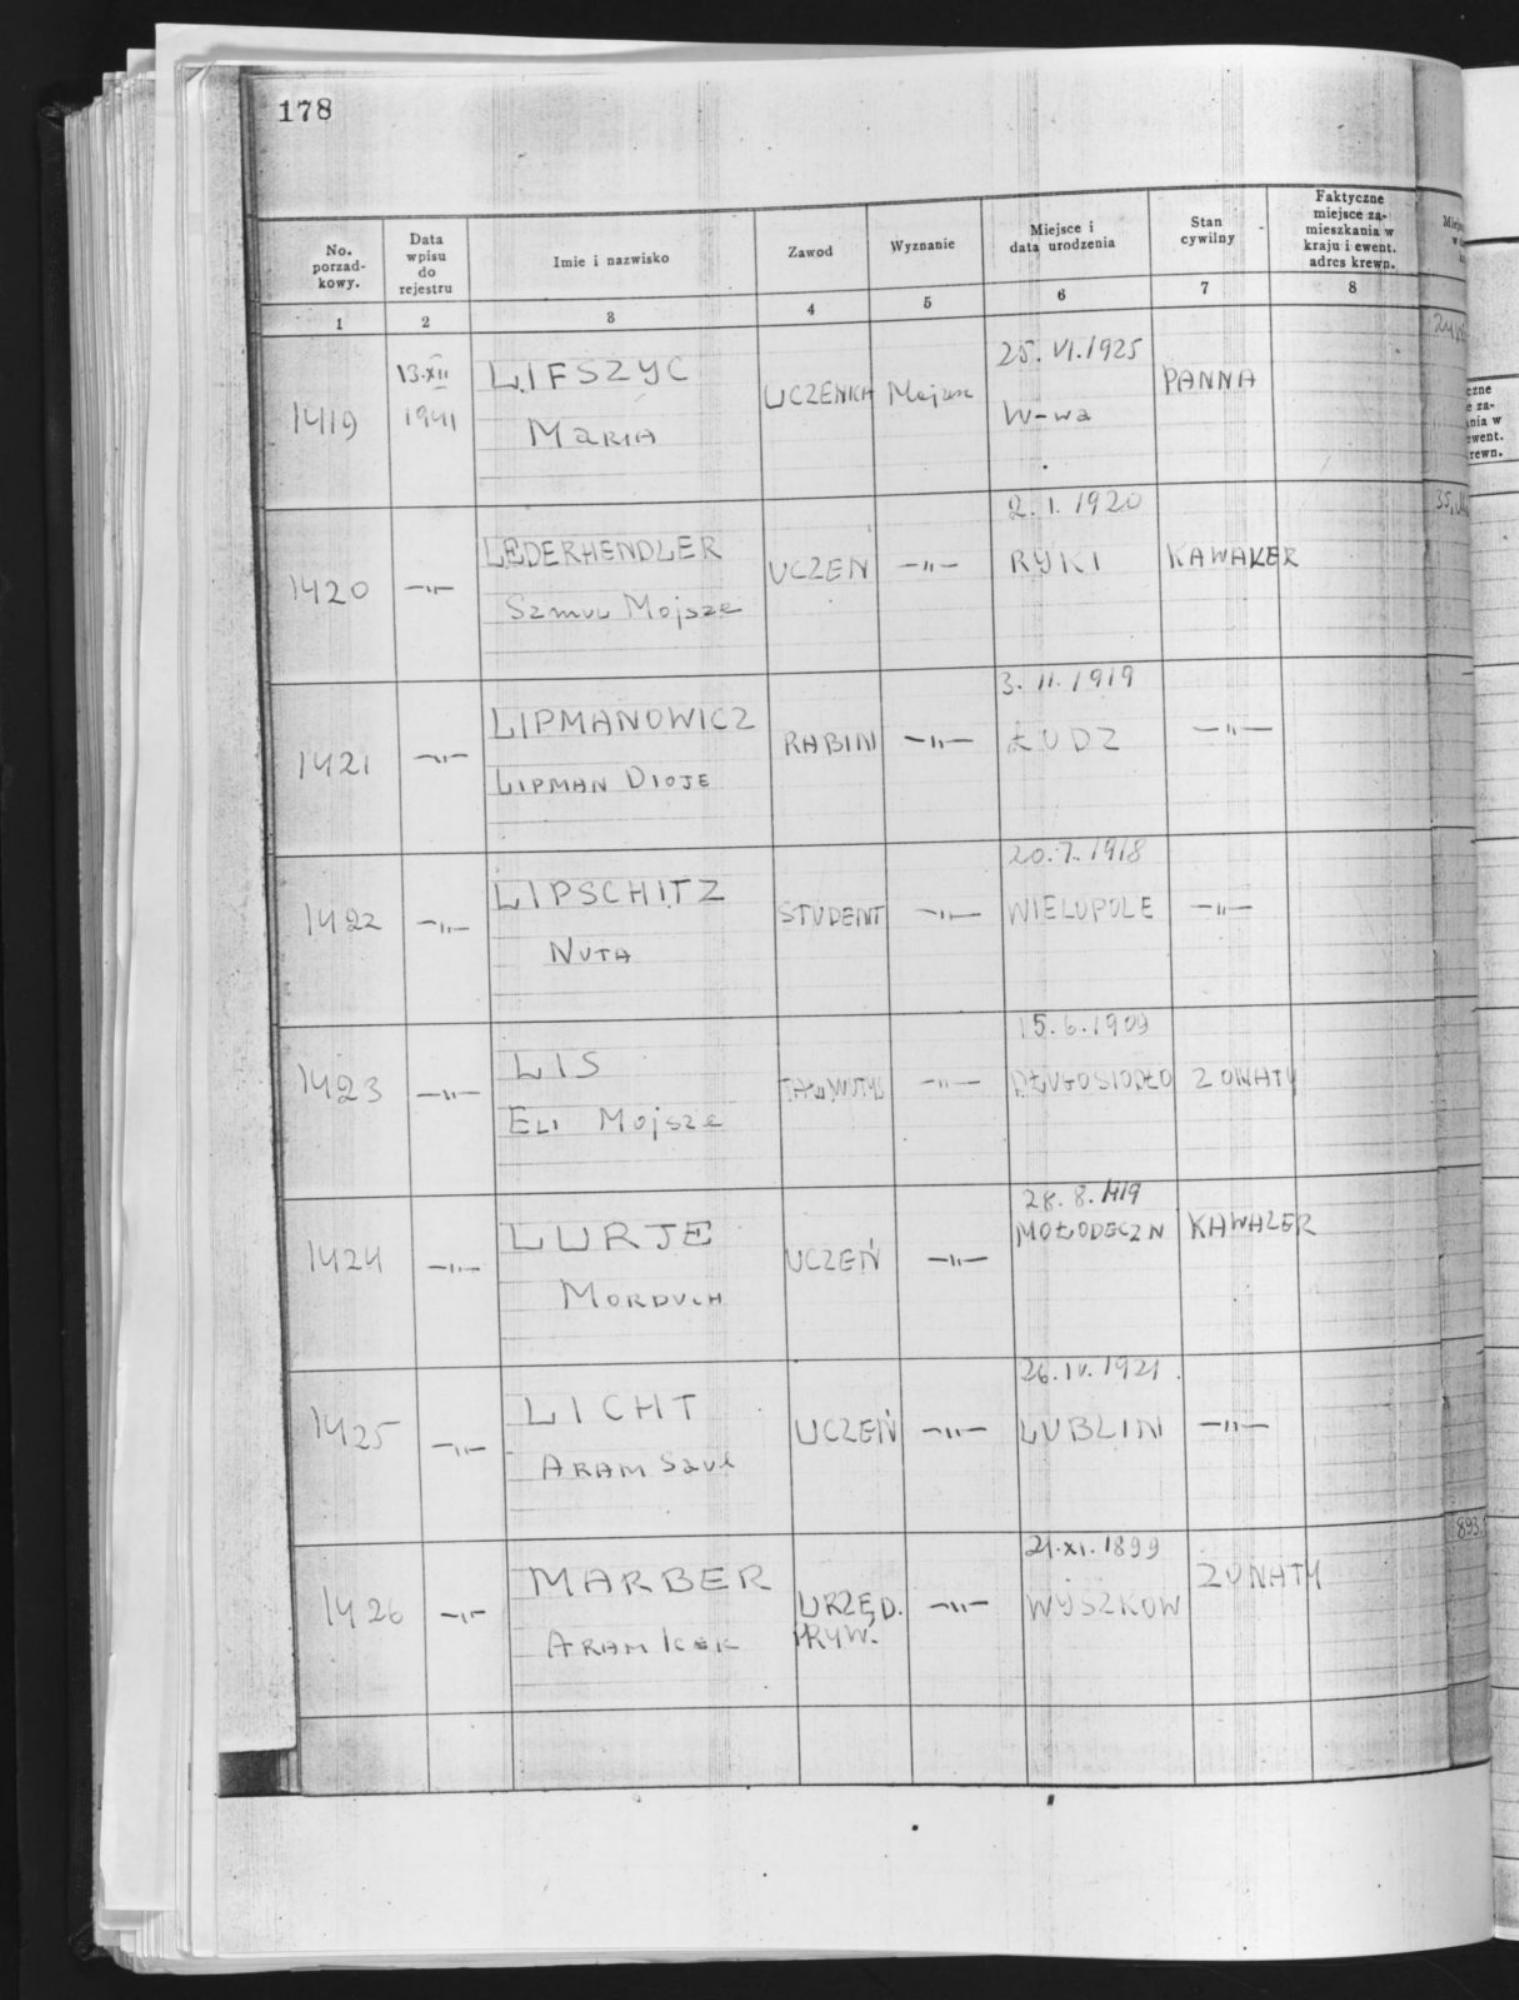 178
No.
porzad-
kowy.
Data
wpisu
do
rejestru
Imie i nazwisko
Zawod
Wyznanie
Miejsce i
data urodzenia
Stan
cywilny
Faktyczne
miejsce za-
mieszkania w
kraju i ewent.
adres krewn.
1
2
3
4
5
6
7
8
1419
13.XII
1941
LIFSZYC
MARIA
UCZENICA
Mojżesz
25.VI.1925
W-wa
PANNA
1420
—"—
LEDERHENDLER
Szmul Mojsze
UCZEN
—"—
2.I.1920
RYKI
KAWALER
1421
—"—
LIPMANOWICZ
LIPMAN DIOJE
RABIN
—"—
3.11.1919
ŁODZ
—"—
1422
—"—
LIPSCHITZ
NUTA
STUDENT
—"—
20.7.1918
WIELOPOLE
—"—
1423
—"—
LIS
ELI Mojsze
—"—
15.6.1909
DŁUGOSIODŁO
ZONATY
1424
—"—
LURJE
MORDUCH
UCZEŃ
—"—
28.8.1919
MOŁODECZN
KAWALER
1425
—"—
LICHT
ABRAM Saul
UCZEŃ
—"—
26.IV.1921
LUBLIN
—"—
1426
—"—
MARBER
ABRAM ICEK
URZĘD.
PRYW.
—"—
21.XI.1899
WYSZKOW
ZONATY
893.
czne
e za-
nia w
ewent.
rewn.